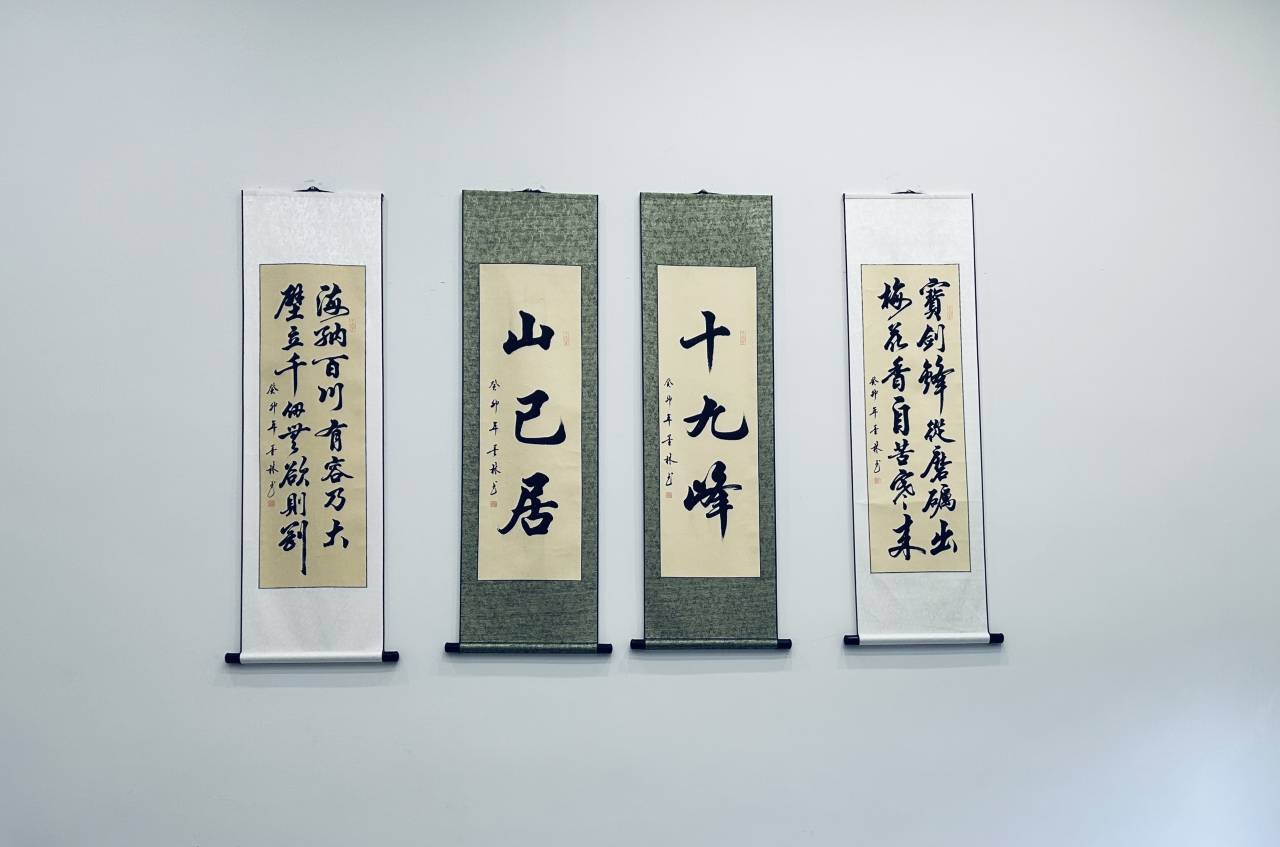 寶劍鋒從磨礪出
梅花香自苦寒來
癸卯年 林书
十九峰
癸卯年 林书
山己居
癸卯年 林书
海納百川有容乃大
壁立千仞無欲則剛
癸卯年 林书